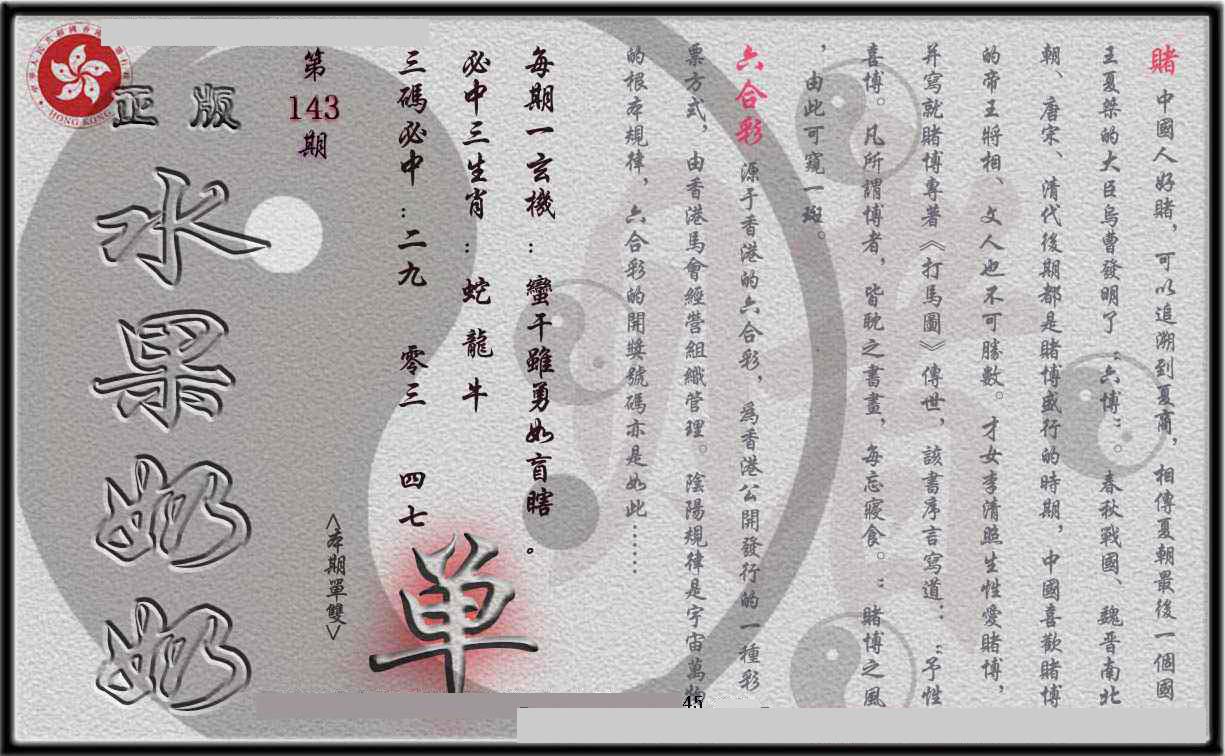 賭 中國人好賭，可以追溯到夏商，相傳夏朝最後一個國
王夏桀的大臣烏曹發明了“六博”。春秋戰國、魏晋南北
朝、唐宋、清代後期都是賭博盛行的時期，中國喜歡賭博
的帝王將相、文人也不可勝數。才女李清照生性愛賭博，
并寫就賭博專著《打馬圖》傳世，該書序言寫道：“予性
喜博。凡所謂博者，皆耽之書畫，每忘寢食。”賭博之風
，由此可窺一斑。
六合彩 源于香港的六合彩，爲香港公開發行的一種彩
票方式，由香港馬會經營組織管理。陰陽規律是宇宙萬物
的根本規律，六合彩的開獎號碼亦是如此……
每期一玄機：蠻干雖勇如盲瞎。
必中三生肖：蛇 龍 牛
三碼必中：二九 零三 四七
單
<本期單雙>
第143期
正版
水果奶奶
HONG KONG
45